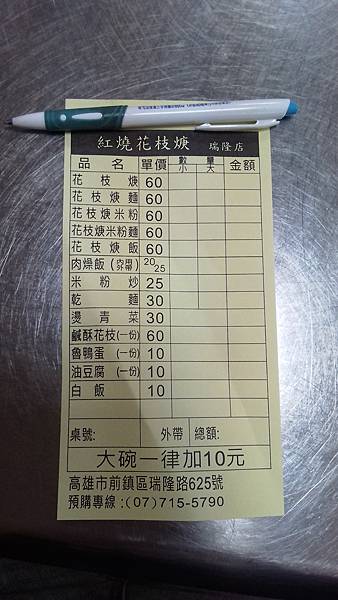 紅燒花枝焿 瑞隆店
品名 單價 數量 小 大 金額
花枝焿 60
花枝焿麵 60
花枝焿米粉 60
花枝焿米粉麵 60
花枝焿飯 60
肉燥飯(內用 外帶) 20 25
米粉炒 25
乾麵 30
燙青菜 30
鹹酥花枝(一份) 60
魯鴨蛋(一份) 10
油豆腐(一份) 10
白飯 10
桌號: 外帶 總額:
大碗一律加10元
高雄市前鎮區瑞隆路625號
預購專線:(07)715-5790